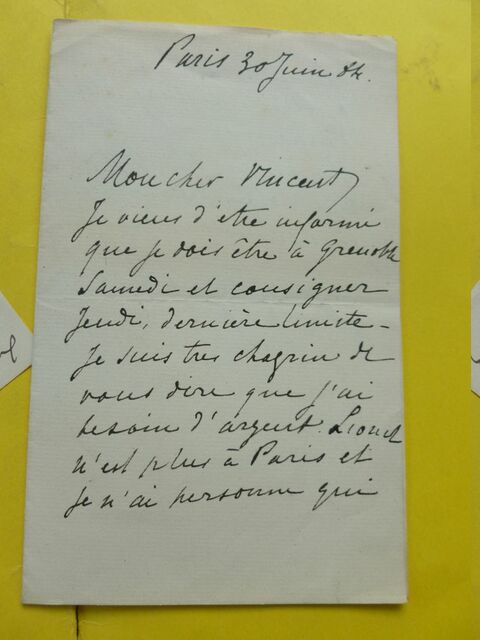 Paris 30 Juin 84.
Mon cher Vincent
Je viens d'être informé
que je dois être à Grenoble
Samedi et consigner
Jeudi, dernière limite -
Je suis très chagrin de
vous dire que j'ai
besoin d'argent. Lionel
n'est plus à Paris et
je n'ai personne qui